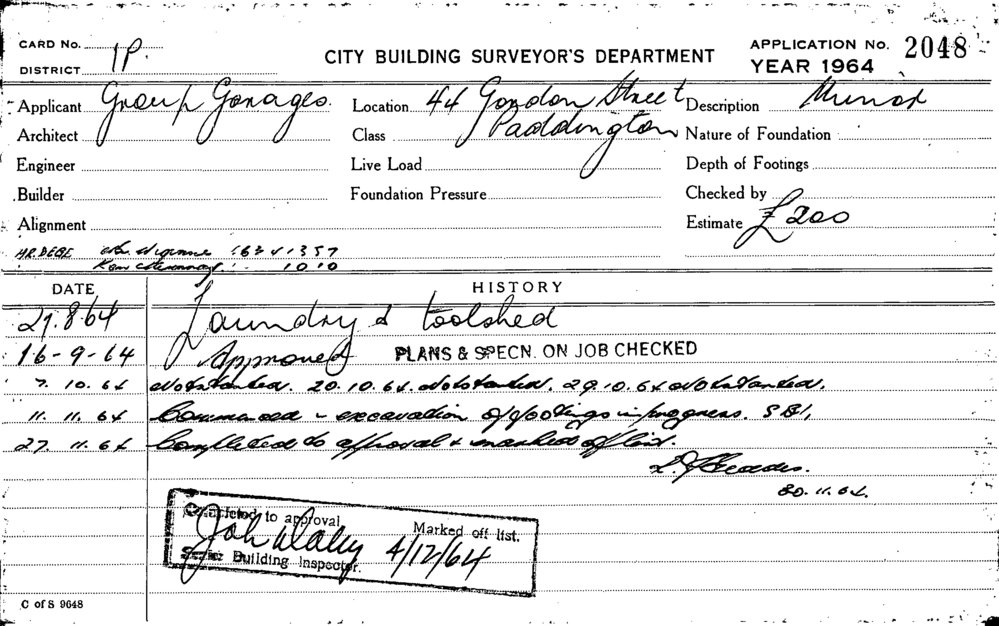 CARD No. 1P.
DISTRICT
CITY BUILDING SURVEYOR'S DEPARTMENT
APPLICATION No. 2048
YEAR 1964
Applicant Group Garages.
Location 44 Gordon Street Paddington
Description Minor
Architect
Class
Nature of Foundation
Engineer
Live Load
Depth of Footings
Builder
Foundation Pressure
Checked by
Alignment
Estimate £200
1357
1010
DATE HISTORY
27.8.64 Laundry & toolshed
16-9-64 Approved PLANS & SPECN. ON JOB CHECKED
7.10.64 Not started. 20.10.64. Not started. 29.10.64 Not started.
11.11.64 Commenced - excavation of footings in progress.
27.11.64 Completed to approval & marked off list.
30.11.64.
Completed to approval Marked off list.
4/12/64
Building Inspector.
C of S 9648